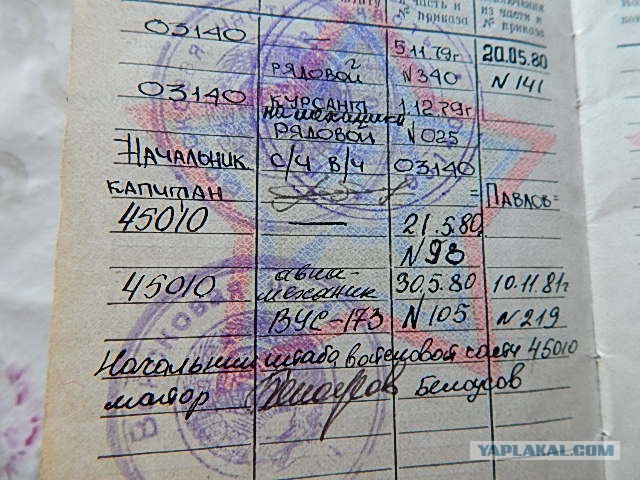 часть и из части и
№ приказа № приказа
03140 5.11.79г 20.05.80
рядовой N340 N141
03140 курсант 1.12.79г
на механика
рядовой N025
Начальник с/ч в/ч 03140
капитан =Павлов=
45010 — 21.5.80
N98
45010 авиа- 30.5.80 10.11.81г
механик
ВУС-173 N105 N219
Начальник штаба войсковой части 45010
майор Белоусов
YAPLAKAL.COM